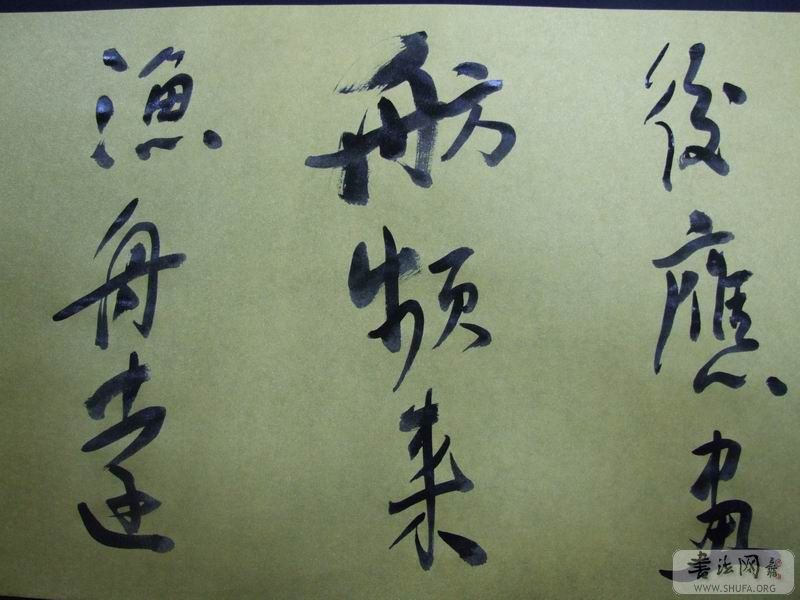 後應畫
舫頻来
漁舟達
书法网
WWW.SHUFA.ORG